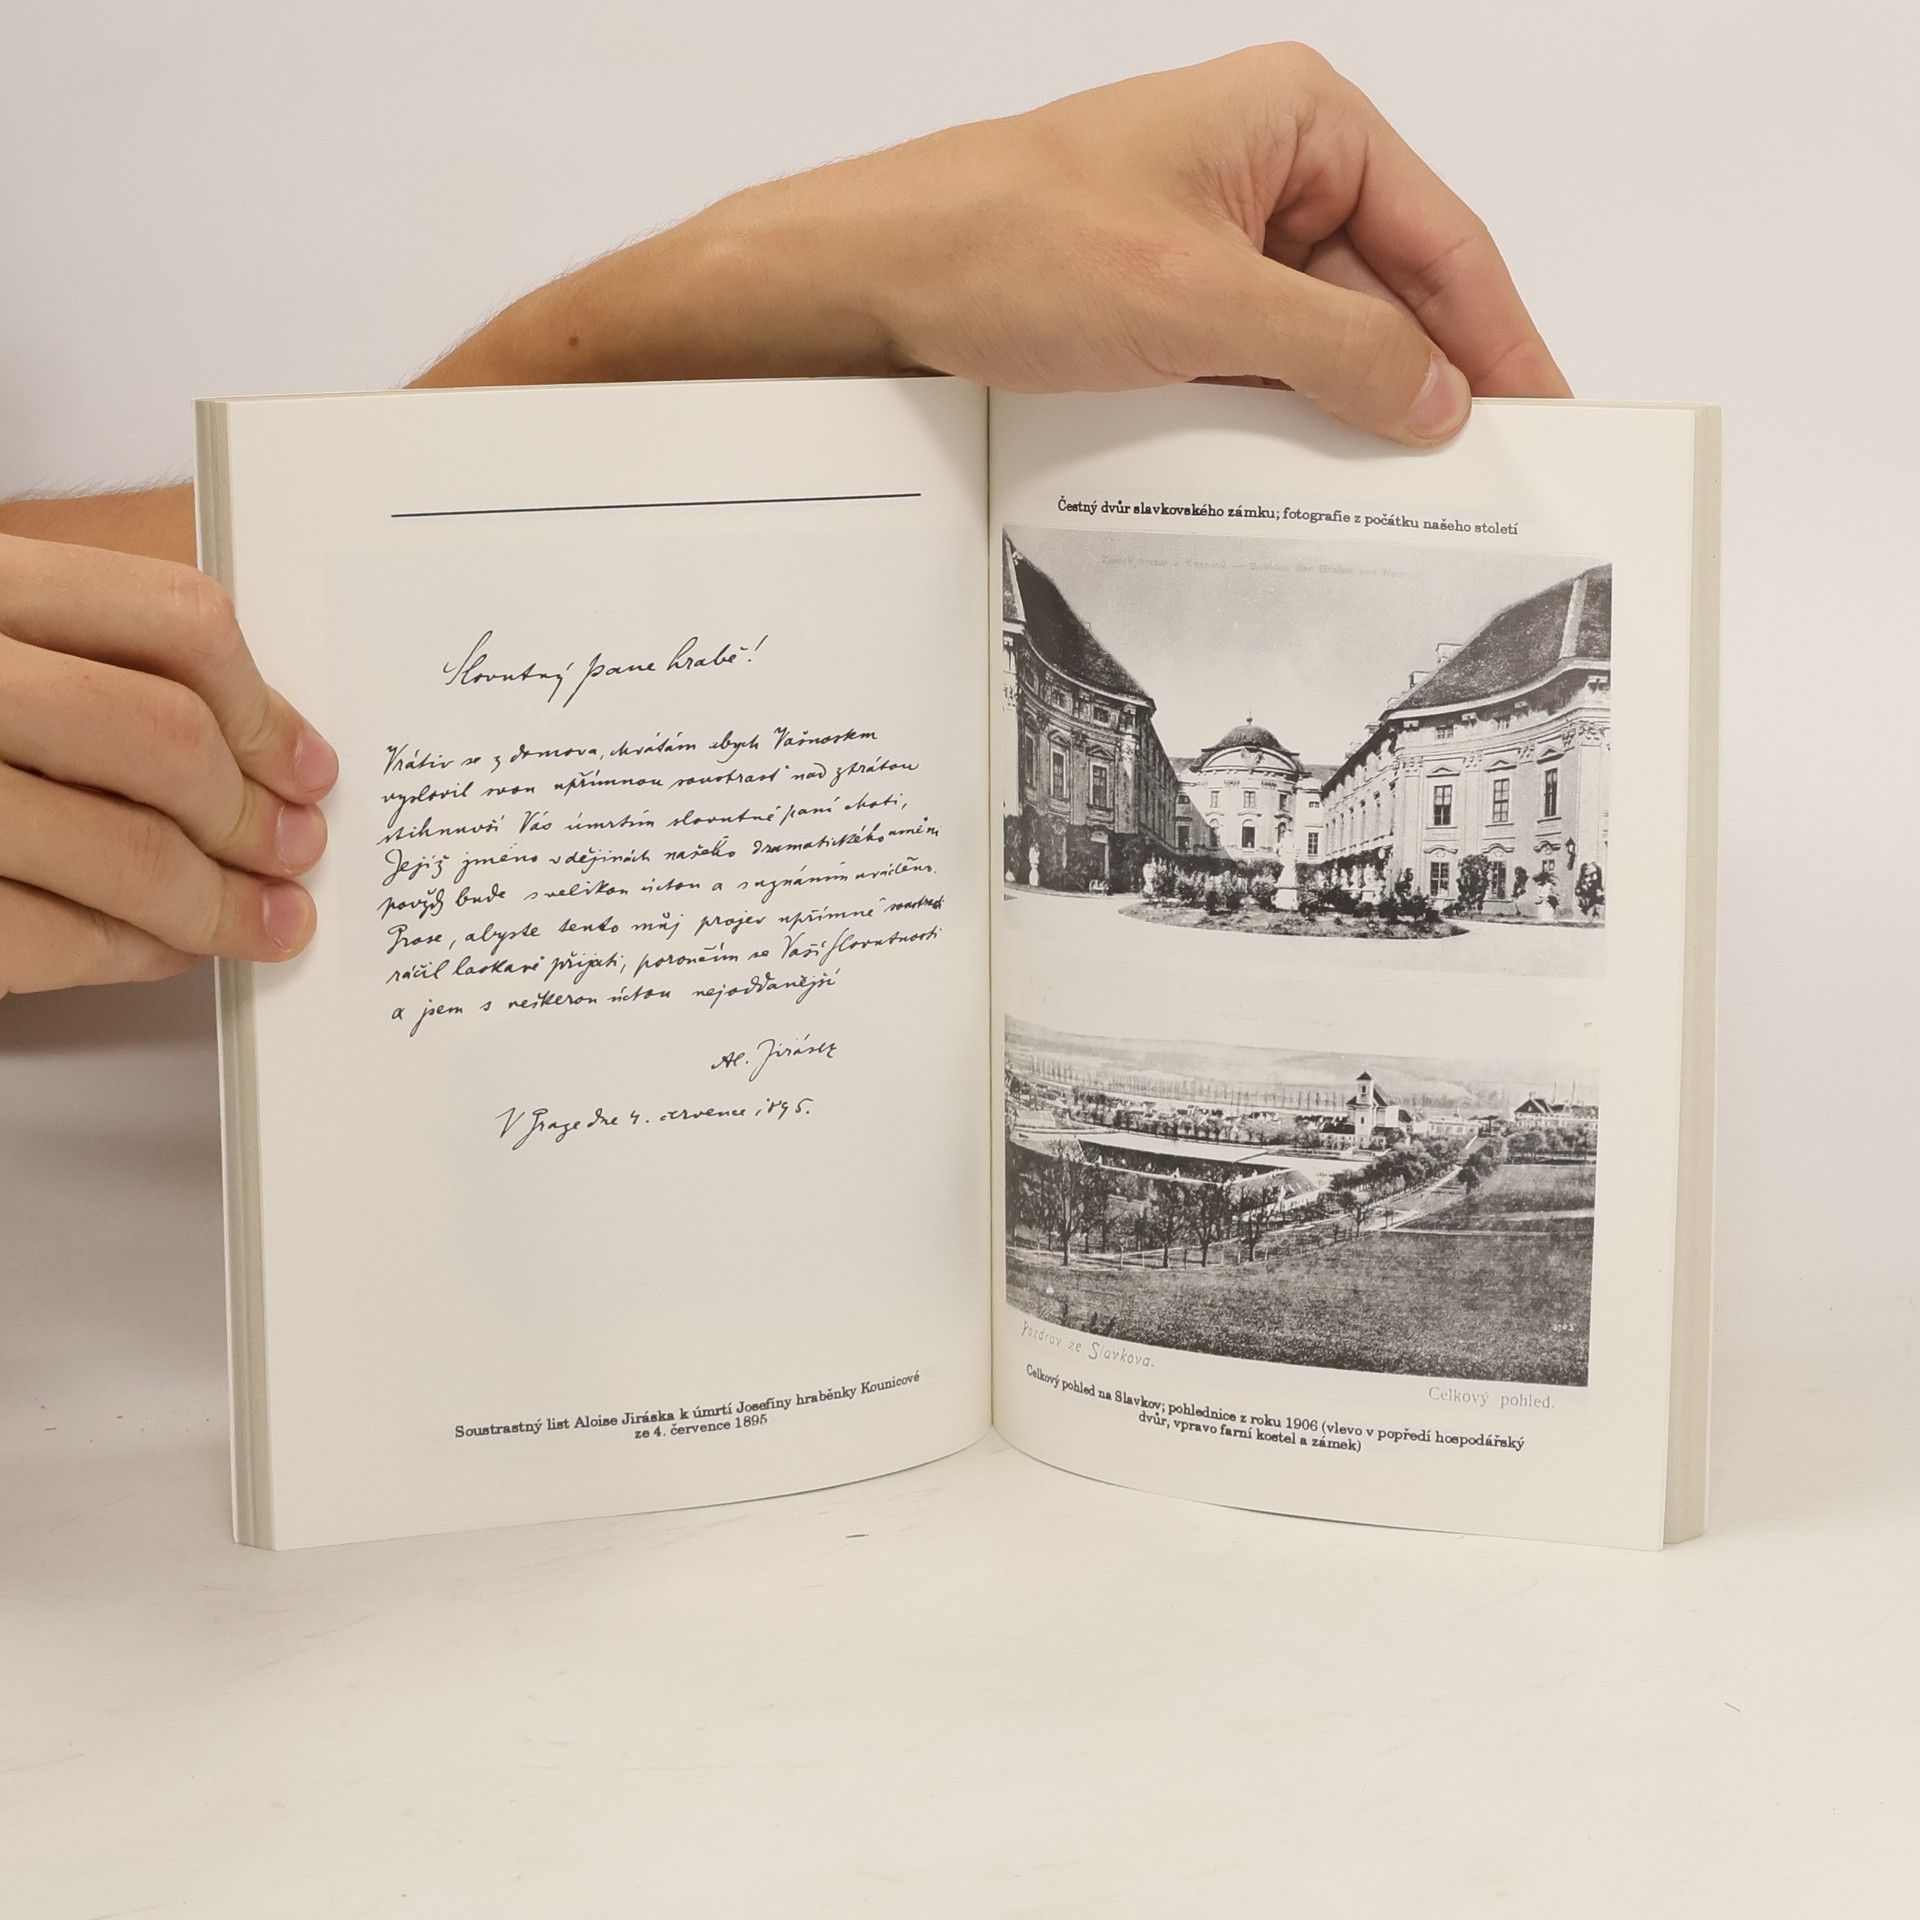 Slovutný pane hrabě!
Vrátiv se z domova, chvátám abych Vašnostem
vyslovil svou upřímnou soustrast nad ztrátou
stihnuvší Vás úmrtím slovutné paní choti,
Jejíž jméno v dějinách našeho dramatického umění
povždy bude s velikou úctou a s uznáním
Prose, abyste tento můj projev upřímné soustrasti
ráčil laskavě přijati, poroučím se Vaší Slovutnosti
a jsem s veškerou úctou nejoddanější
Al. Jirásek
V Praze dne 4. července 1895.
Soustrastný list Aloise Jiráska k úmrtí Josefíny hraběnky Kounicové
ze 4. července 1895
Čestný dvůr slavkovského zámku; fotografie z počátku našeho století
Pozdrav ze Slavkova.
Celkový pohled.
Celkový pohled na Slavkov; pohlednice z roku 1906 (vlevo v popředí hospodářský
dvůr, vpravo farní kostel a zámek)